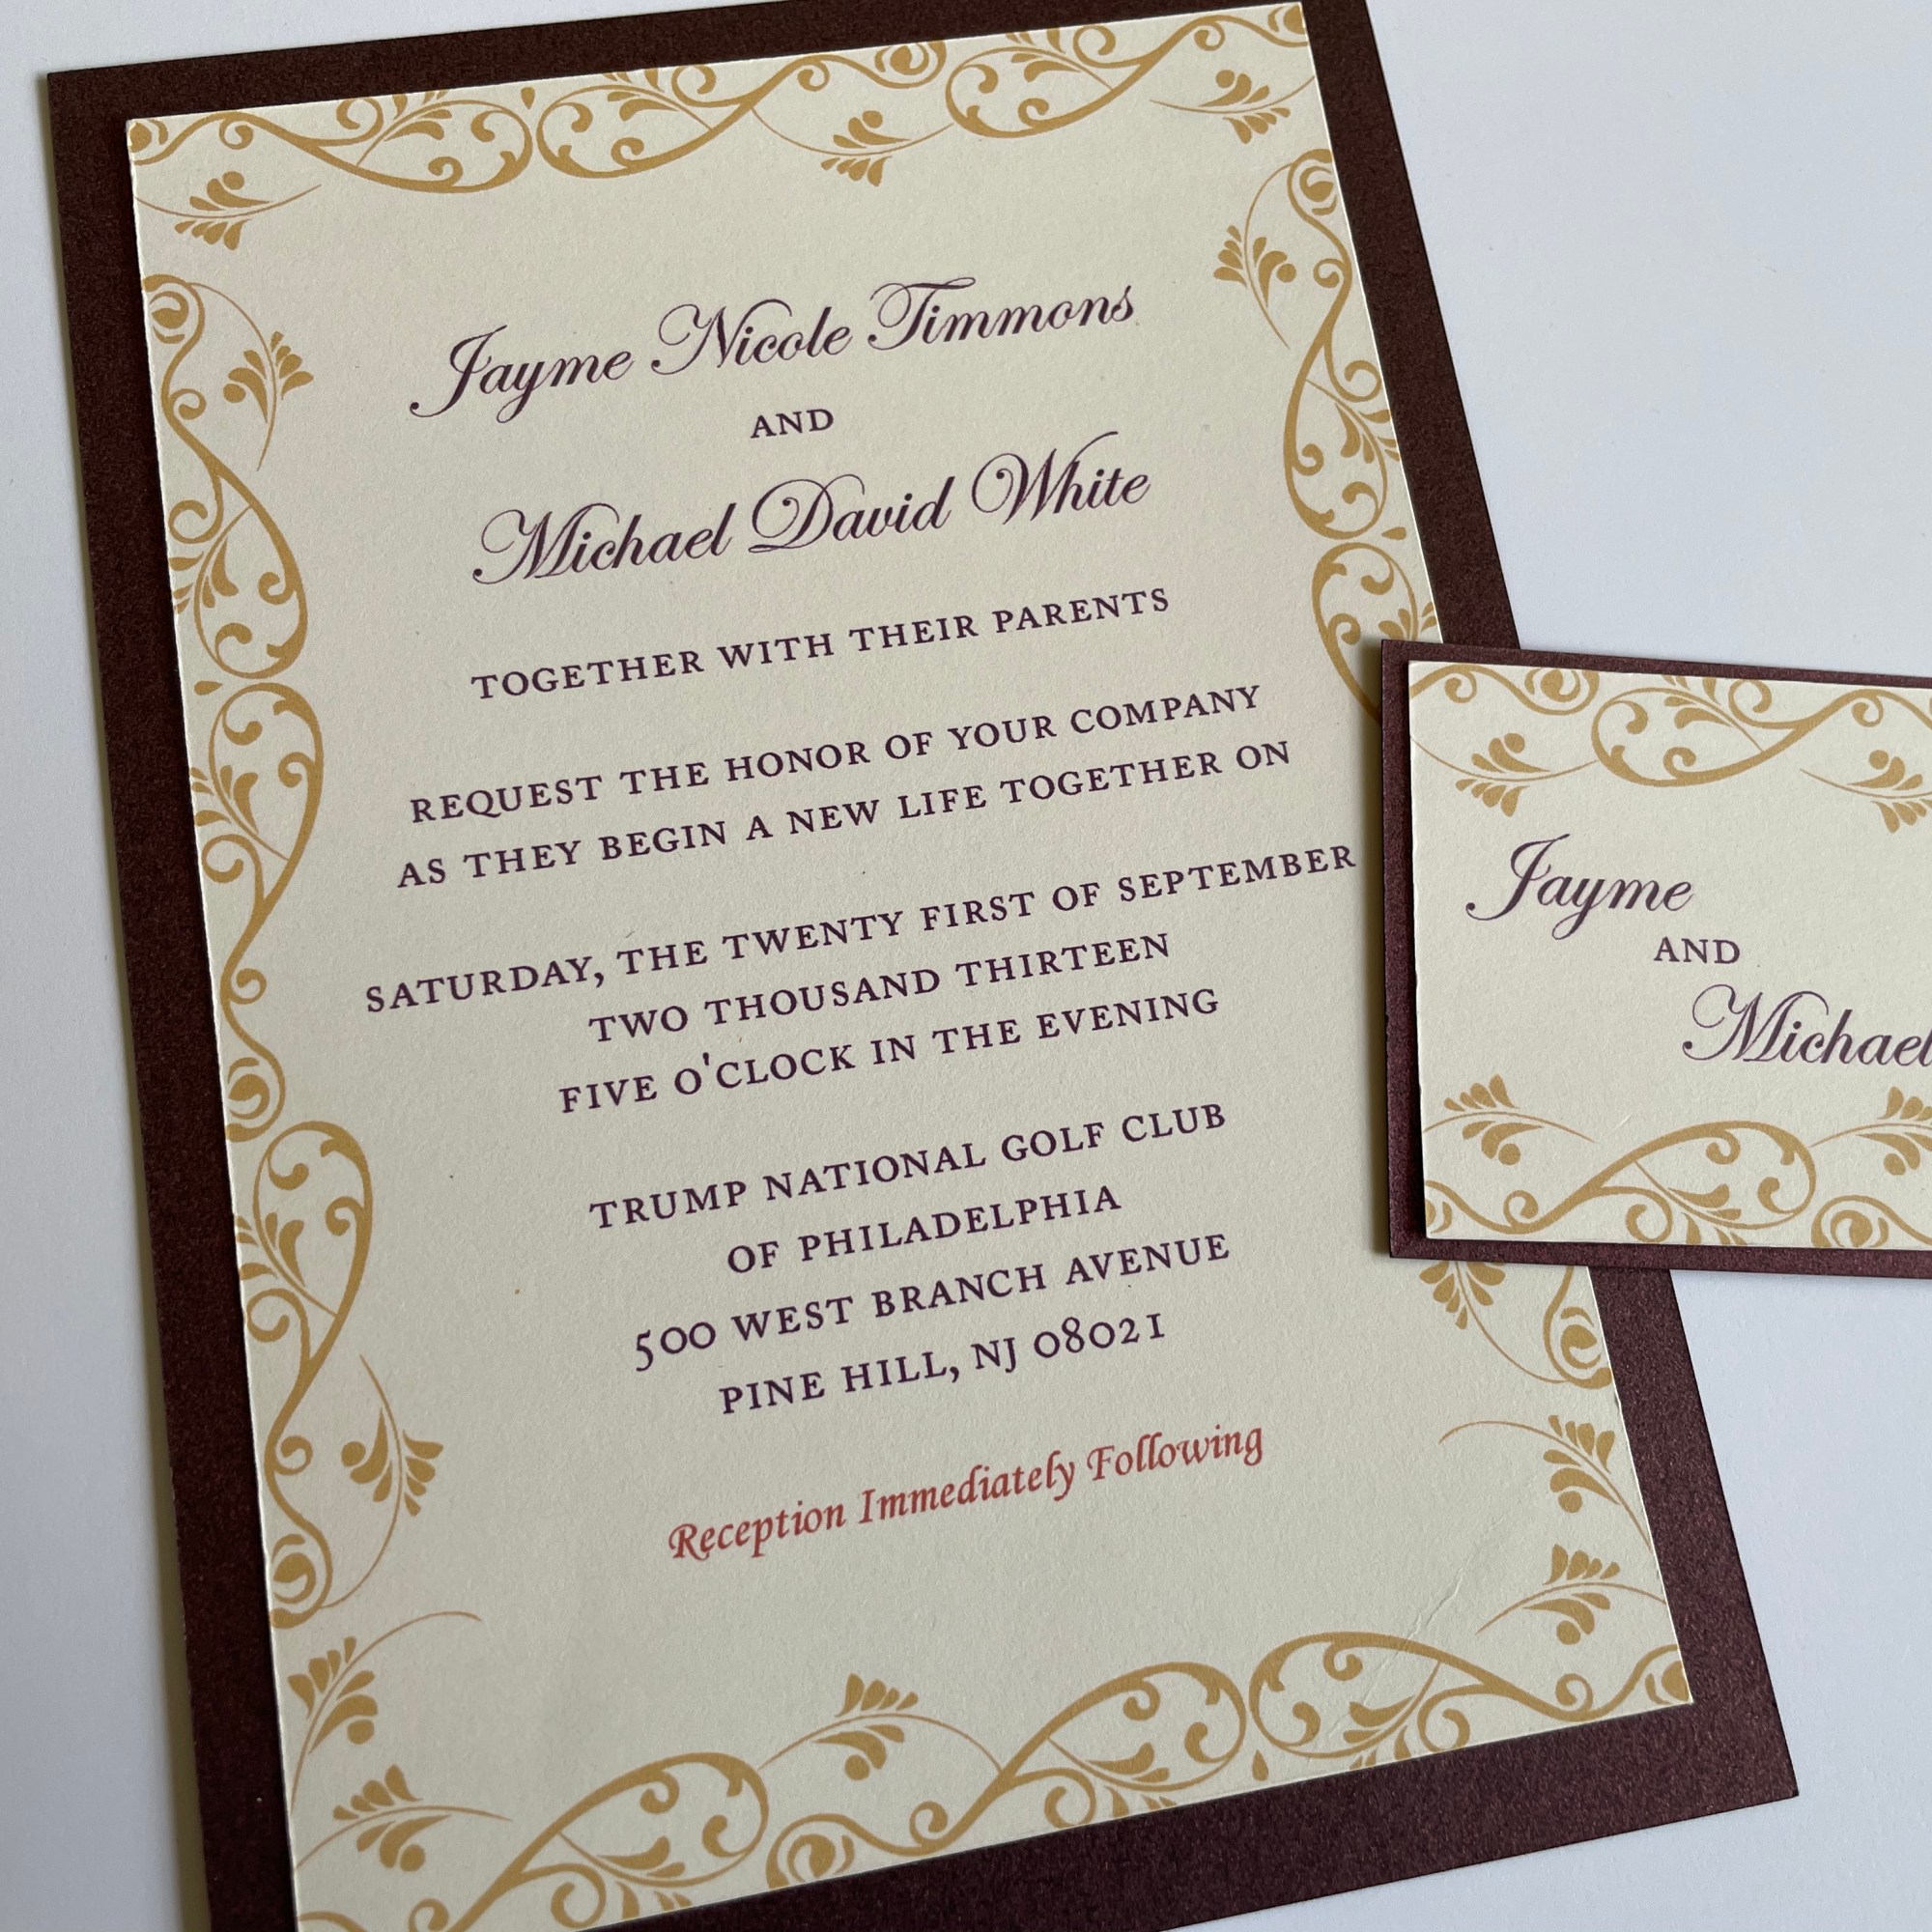 Jayme Nicole Timmons
AND
Michael David White
TOGETHER WITH THEIR PARENTS
REQUEST THE HONOR OF YOUR COMPANY
AS THEY BEGIN A NEW LIFE TOGETHER ON
SATURDAY, THE TWENTY FIRST OF SEPTEMBER
TWO THOUSAND THIRTEEN
FIVE O'CLOCK IN THE EVENING
TRUMP NATIONAL GOLF CLUB
OF PHILADELPHIA
500 WEST BRANCH AVENUE
PINE HILL, NJ 08021
Reception Immediately Following
Jayme
AND
Michael